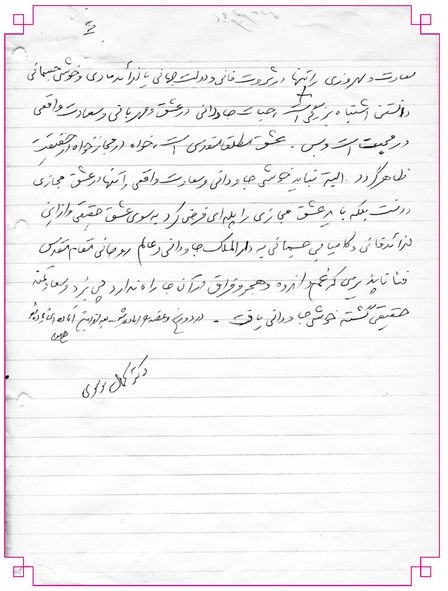 سعادت و بهروزی را تنها در ثروت فانی و دولت جهانی یا لذائذ مادی و خوشی جسمانی
دانستن اشتباه بزرگی است، حیات جاودانی در عشق و مهربانی و سعادت واقعی
در محبت است و بس. عشق مطلقا مقدس است، خواه در مجاز خواه در حقیقت
ظاهر گردد. البته نباید خوشی جاودانی و سعادت واقعی را تنها در عشق مجازی
دانست بلکه باید عشق مجازی را پله‌ای فرض کرد به سوی عشق حقیقی و از این
لذائذ فانی و کامیابی جسمانی به دارالملک جاودانی و عالم روحانی مقام مقدس
فنا ناپذیری که غم و اندوه و هجر و فراق در آن جا راه ندارد پی برد و سعادتمند
حقیقی گشته خوشی جاودانی یافت.
دکتر